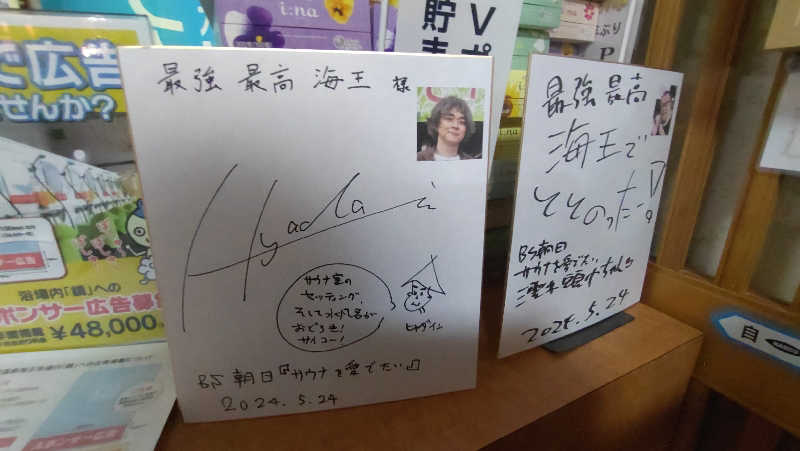 で広告
せんか?
浴場内「鏡」への
ポンサー広告募
¥48,000
スポンサー広告
i:na
貯ま
Vポ
i:na
最強 最高 海王 様
Hyadain
サウナ室の
セッティング、
そして水風呂が
おどろき!
サイコー!
ヒャダイン
BS朝日『サウナを愛でたい』
2024.5.24
最強 最高
海王で
ととのったー!
BS朝日
サウナを愛でたい
2024.5.24
自